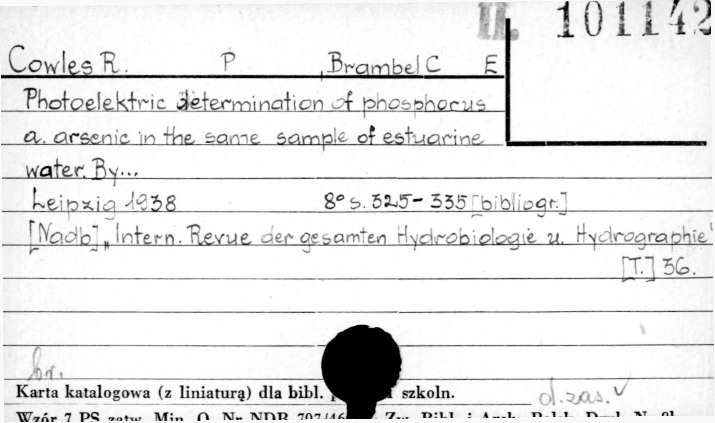 II. 101142
Cowles R. P , Brambel C E
Photoelektric determination of phosphorus
a. arsenic in the same sample of estuarine
water. By...
Leipzig 1938 8° s. 325-335 [bibliogr.]
[Nadb] „Intern. Revue der gesamten Hydrobiologie u. Hydrographie"
[T.] 36.
br.
Karta katalogowa (z liniaturą) dla bibl. szkoln.
d. zas. √
Wzór 7 PS zatw. Min. O. Nr NDB